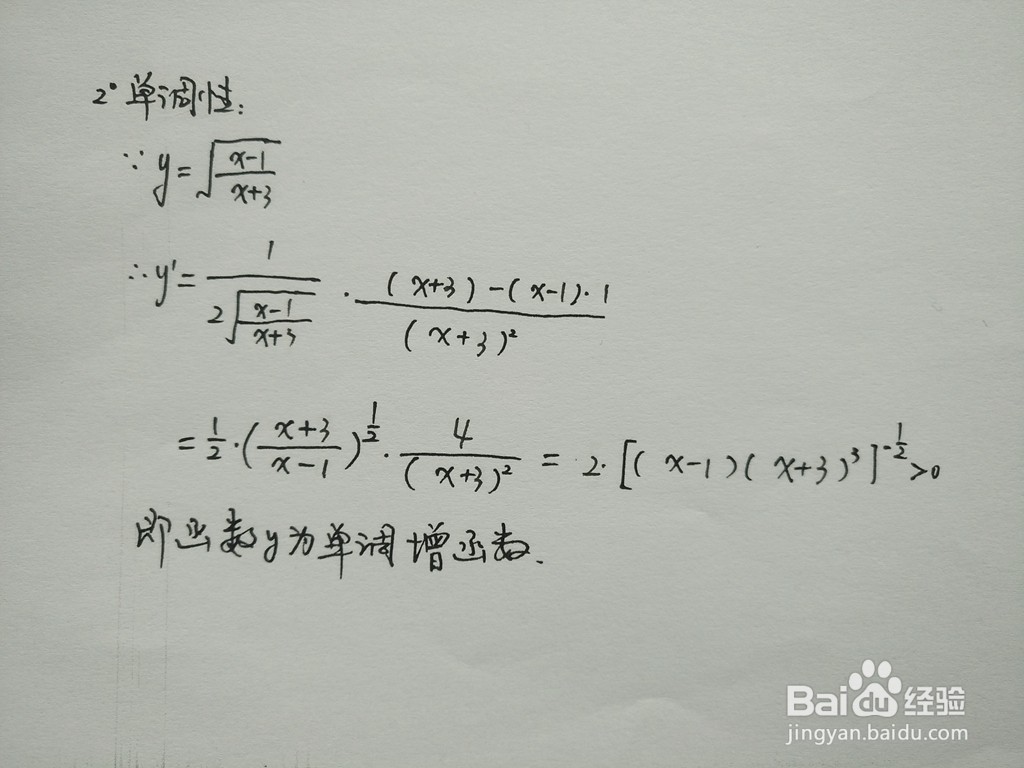 2° 单调性:
∵ y = √((x-1)/(x+3))
∴ y' = 1/(2√((x-1)/(x+3))) · ((x+3)-(x-1)·1)/(x+3)²
= 1/2·((x+3)/(x-1))^(1/2) · 4/(x+3)² = 2·[(x-1)(x+3)³]^(-1/2) >0
即函数y为单调增函数.
Bai du 经验
jingyan.baidu.com